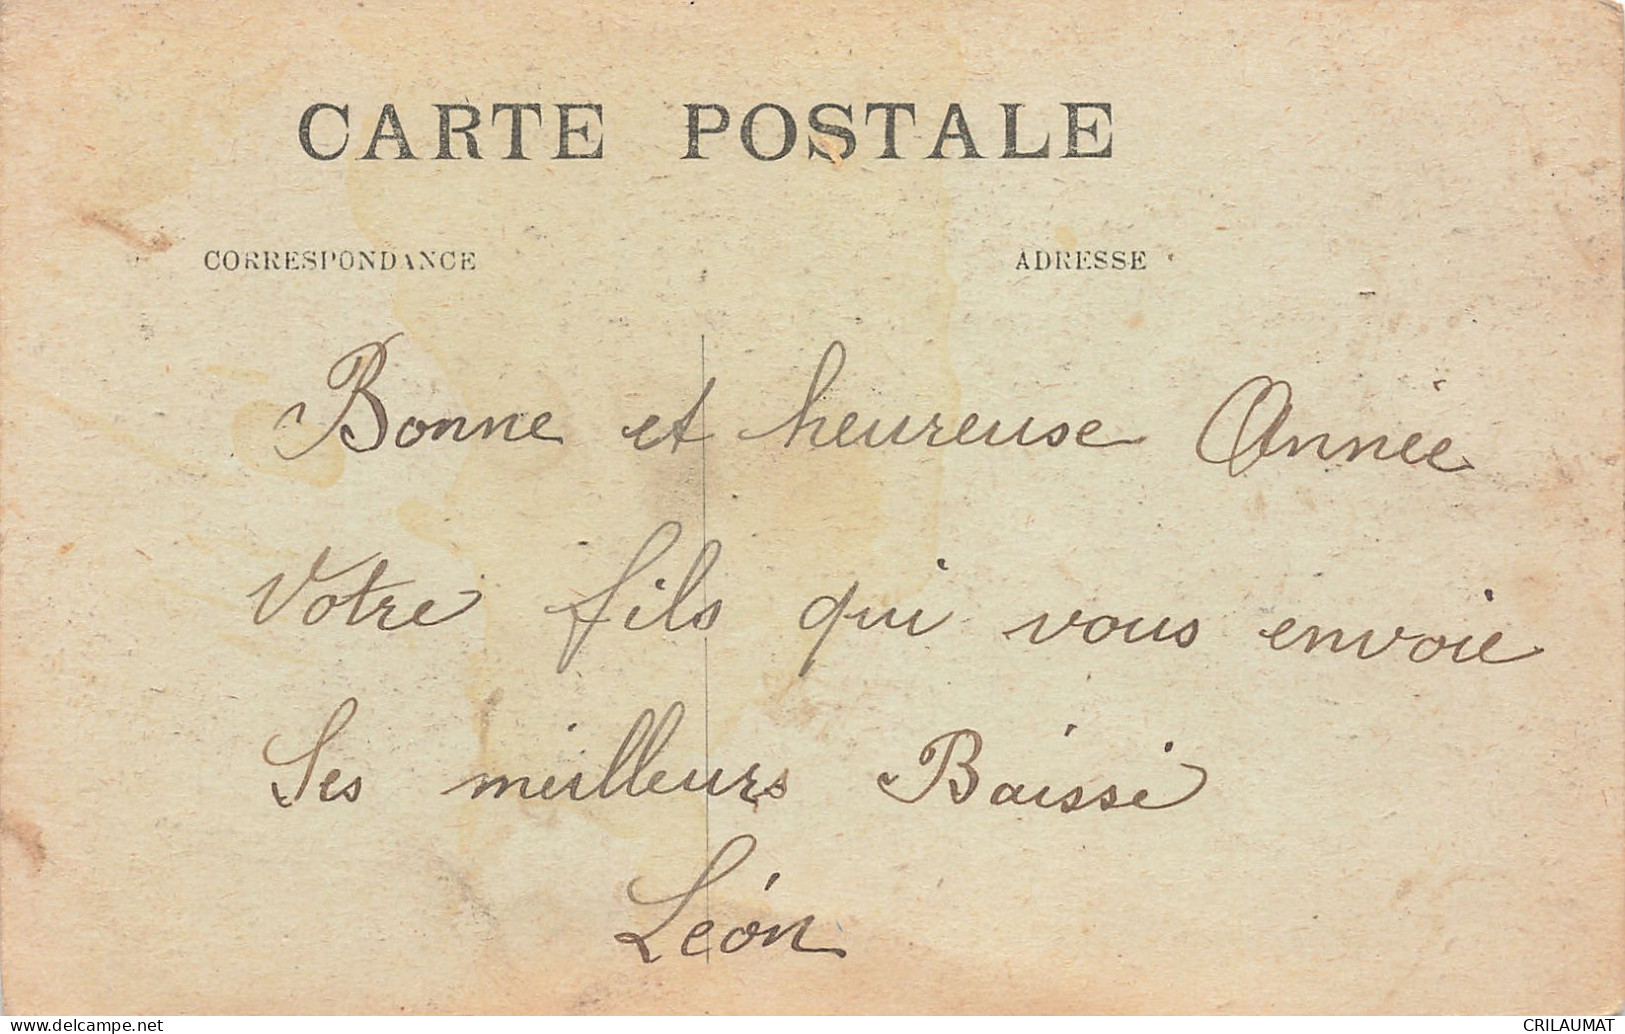 CARTE POSTALE
CORRESPONDANCE ADRESSE
Bonne et heureuse Année
Votre fils qui vous envoie
Ses meilleurs Baissé
Léon
www.delcampe.net CRILAUMAT